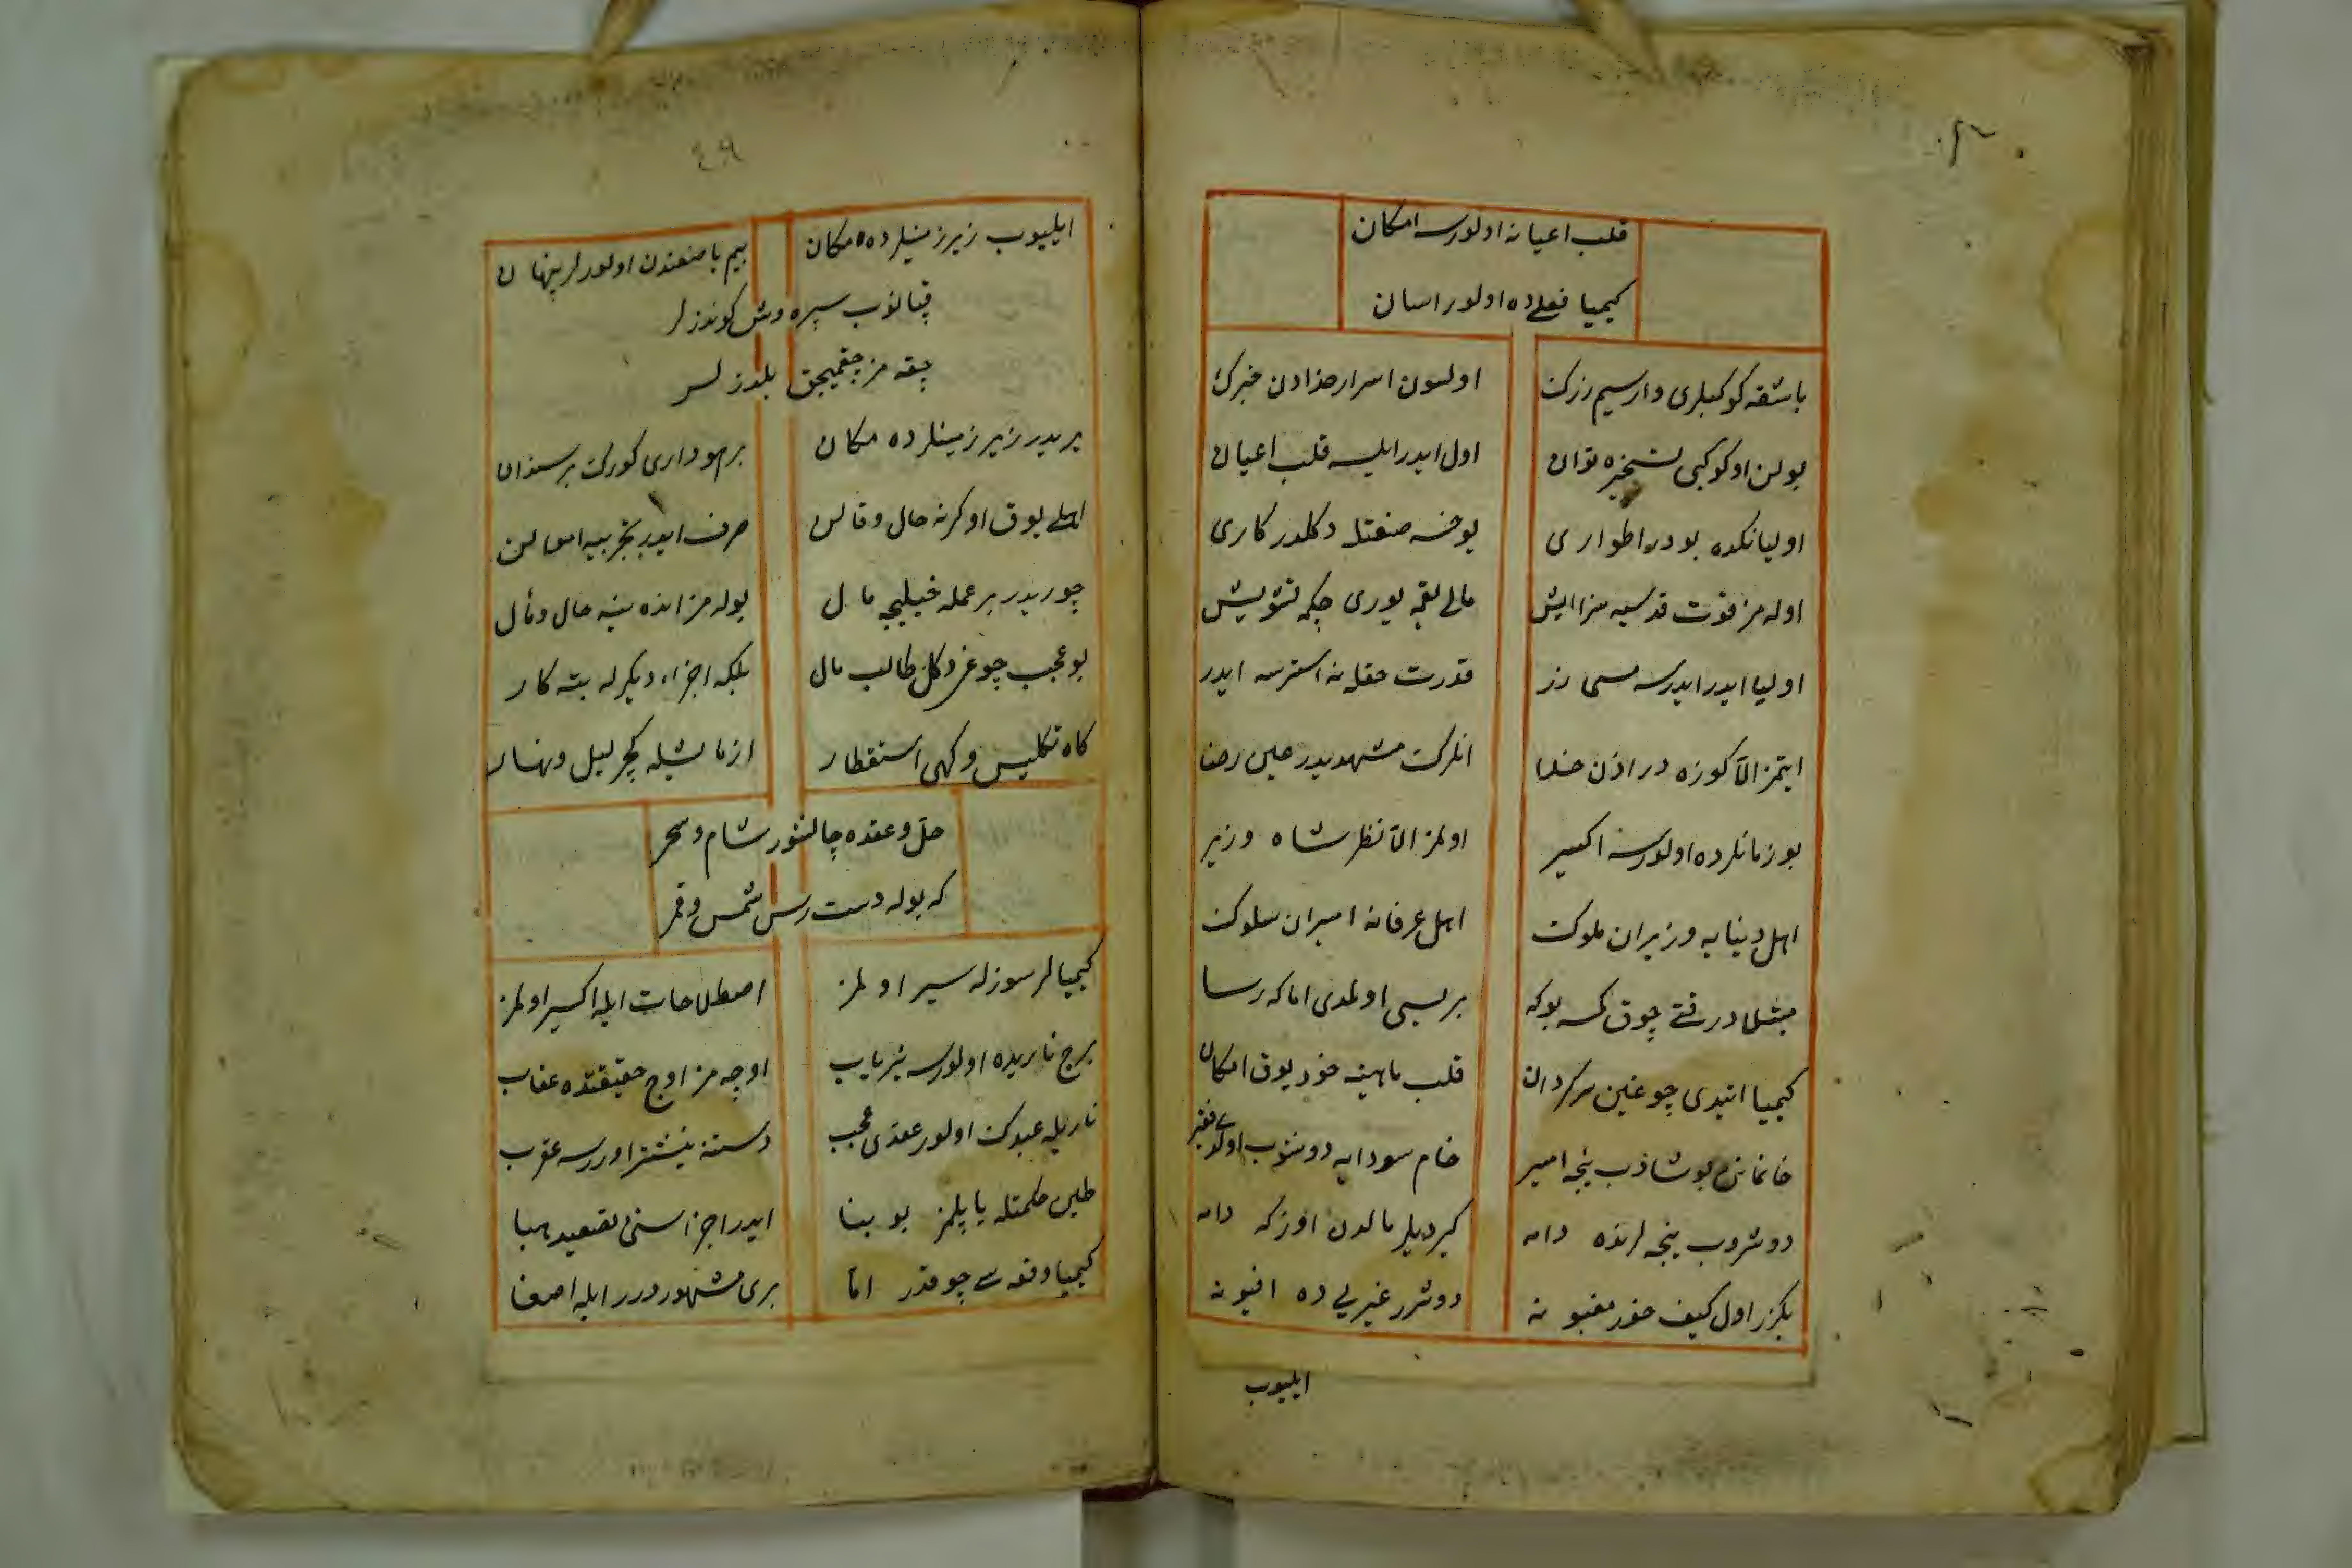 قلب اعیانه اولورسه امکان
کیمیا فعلی ده اولور اسان
باشقه کوکبلری وار سیم زرک
اولسون اسرار خدادن خبرک
بولن او کوکبی تسخیره توان
اول ایدر ایلیه قلب اعیان
اولیانکده بودر اطواری
یوخسه صنعتله دکلدر کاری
اوله مز قوت قدسیه سز ایش
مالی یقمه یوری چکمه تشویش
اولیا ایدر ایدرسه مسی زر
قدرت حقله نه استرسه ایدر
ایتمز الا کوزه در اذن خدا
انلرک مشهدیدر عین رضا
بو زمانلرده اولورسه اکسیر
اولمز الا نظر شاه وزیر
اهل دنیایه وزیران ملوک
اهل عرفانه امیران سلوک
مبتلادر قتی چوق کمسه بوکه
بریسی اولمدی اما که رسا
کیمیا ایتدی چوغین سرکردان
قلب ماهیته خود یوق امکان
خانماننی بوشادب نیجه امیر
خام سودایه دوشوب اولدی فقیر
دوشروب نیجه لرنده دامه
کیردیلر مالدن اوزکه دامه
بکزر اول کیف خور مغبونه
دوشرر غیریی ده افیونه
ایلیوب
٤٩
ایلیوب زیر زمینلرده مکان
بیم باصنمدن اولورلر پنهان
قپانوب سیره دش کوندزلر
چقه مز چقمیجق یلدزلر
یریدر زیر زمینلرده مکان
برهوداری کورک بر سندان
اهلی یوق اوکرنه حال و قالن
صرف ایدر تجربیه اموالن
چوریدر بر عمله خیلیجه مال
بوله مز انده ینه حال و مأل
بو عجب چوغی دکل طالب مال
بلکه اجزاء دیکرله بته کار
کاه تکلیس و کهی استقطار
ازمایشیله کچر لیل و نهار
حل و عقده چالشور شام و سحر
که بوله دست رس شمس و قمر
کیمیالر سوزله سیر اولمز
اصطلاحات ایله اکسیر اولمز
برج ناریده اولورسه نیریاب
اوچه مز اوج حقیقتده عقاب
ناریله عبدک اولور عقدی عجب
دستنه نیشتر اوررسه عقرب
طین حکمتله یاپلمز بو بنا
ایدر اجزاسنی تصعید هبا
کیمیا وقعه سی چوقدر اما
بری مشهوردرر ایله اصغا